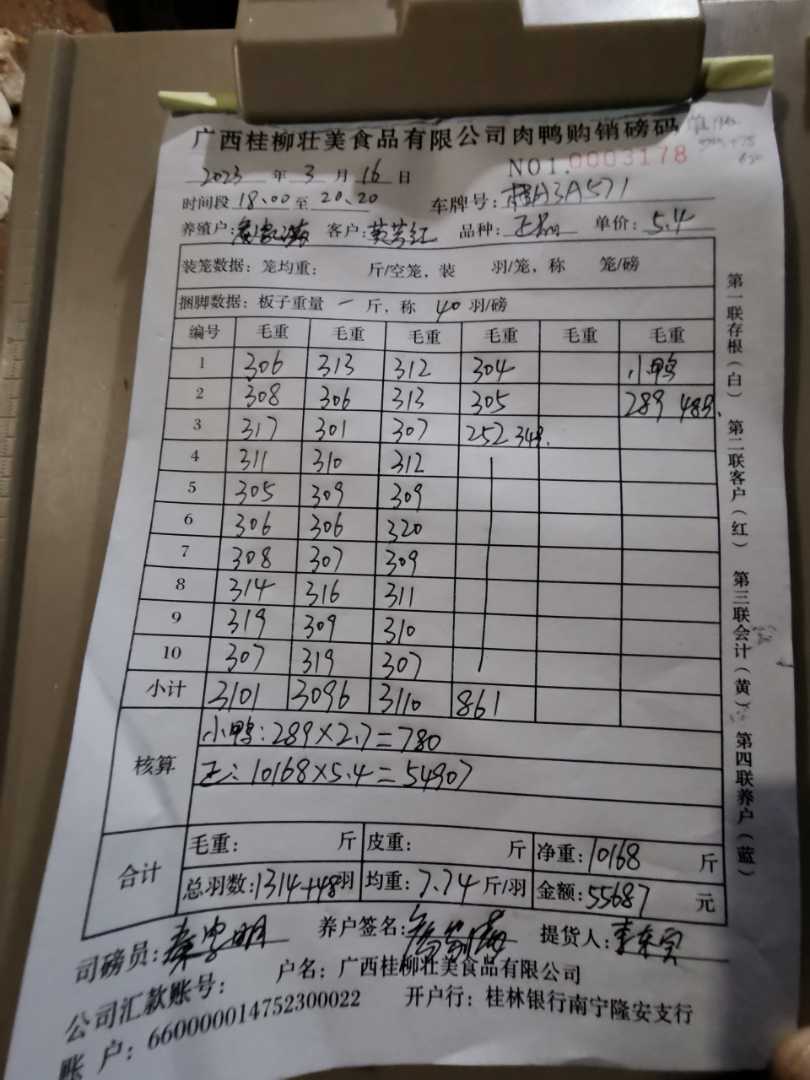 广西桂柳壮美食品有限公司肉鸭购销磅码
NO1.0003178
2023 年 3 月 16 日
时间段 18:00 至 20:20 车牌号: 桂A3A571
养殖户: 客户: 黄芳红 品种: 正 单价: 5.4
装笼数据: 笼均重: 斤/空笼, 装 羽/笼, 称 笼/磅
捆脚数据: 板子重量 一 斤, 称 40 羽/磅
编号 毛重 毛重 毛重 毛重 毛重 毛重
1 306 313 312 304 小鸭
2 308 306 313 305 289 48羽.
3 317 301 307 252 34羽.
4 311 310 312
5 305 309 309
6 306 306 320
7 308 307 309
8 314 316 311
9 319 309 310
10 307 319 307
小计 3101 3096 3110 861
核算
小鸭: 289×2.7=780
正: 10168×5.4=54907
合计
毛重: 斤 皮重: 斤 净重: 10168 斤
总羽数: 1314+48羽 均重: 7.74 斤/羽 金额: 55687 元
司磅员: 养户签名: 提货人:
户名: 广西桂柳壮美食品有限公司
公司汇款账号:
账 户: 660000014752300022 开户行: 桂林银行南宁隆安支行
第一联存根(白) 第二联客户(红) 第三联会计(黄) 第四联养户(蓝)